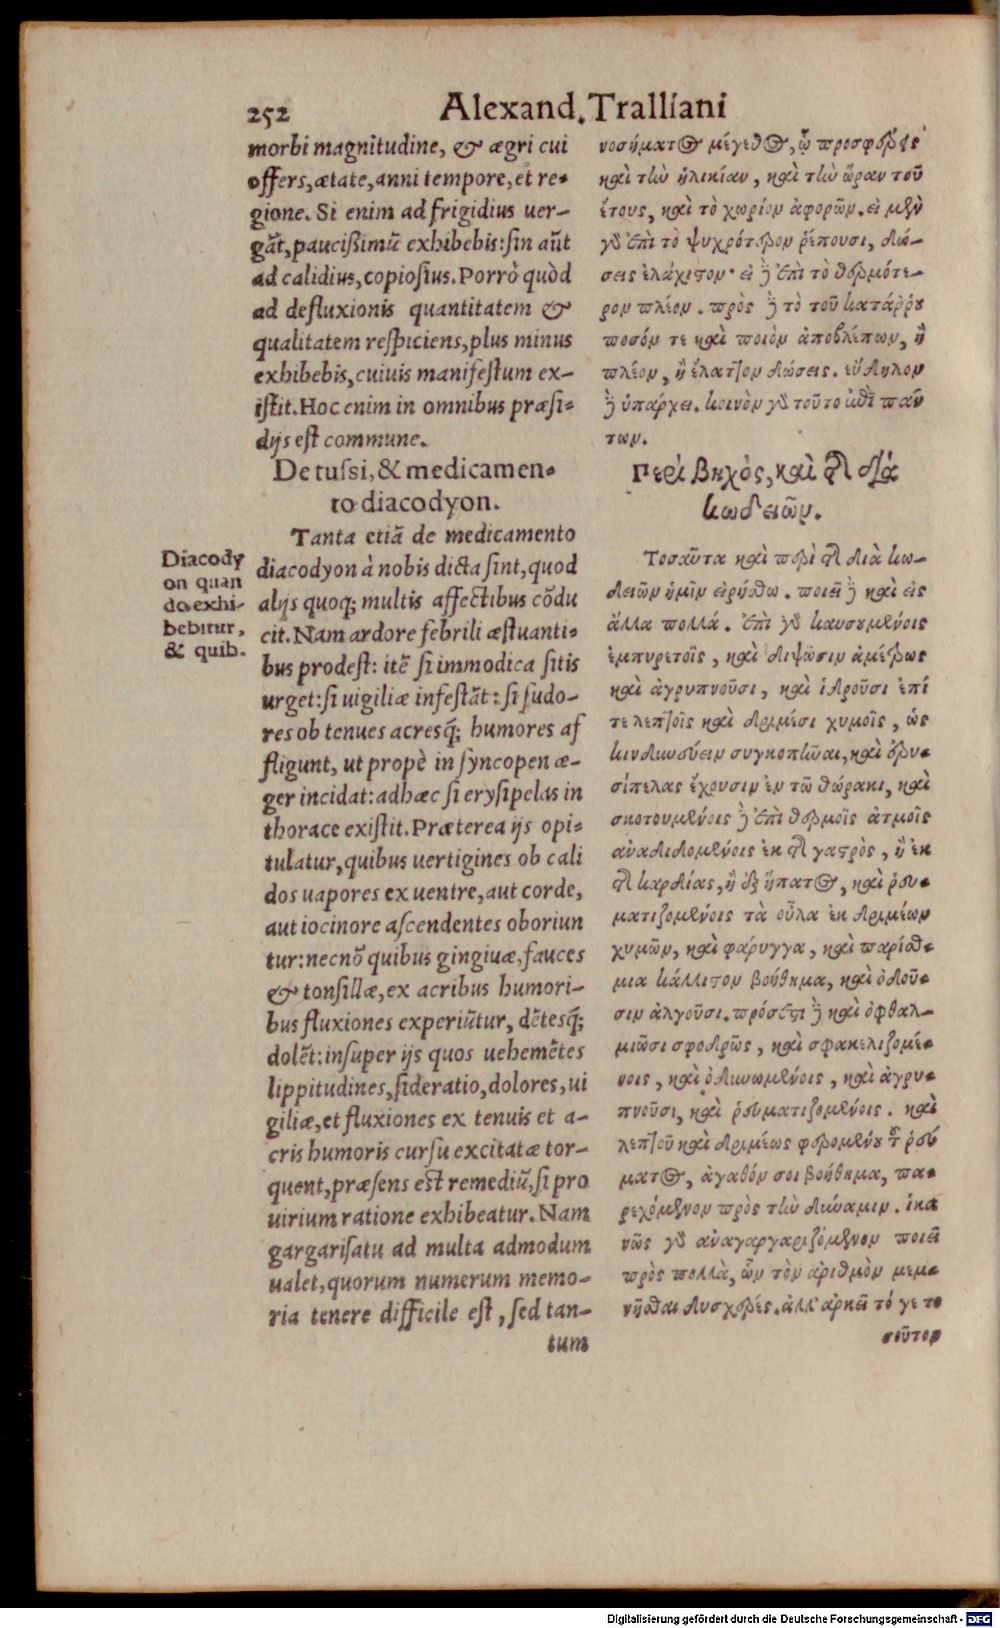 252
Alexand. Tralliani
morbi magnitudine, & ægri cui
offers, ætate, anni tempore, et re-
gione. Si enim ad frigidius uer-
gãt, paucißimũ exhibebis: sin aũt
ad calidius, copiosius. Porrò quòd
ad defluxionis quantitatem &
qualitatem respiciens, plus minus
exhibebis, cuiuis manifestum ex-
istit. Hoc enim in omnibus præsi-
dijs est commune.
De tussi, & medicamen-
to diacodyon.
Tanta etiã de medicamento
diacodyon à nobis dicta sint, quod
alijs quoq; multis affectibus cõdu
cit. Nam ardore febrili æstuanti-
bus prodest: itẽ si immodica sitis
urget: si uigiliæ infestãt: si sudo-
res ob tenues acresq́; humores af
fligunt, ut propè in syncopen æ-
ger incidat: ad hæc si erysipelas in
thorace existit. Præterea ijs opi-
tulatur, quibus uertigines ob cali
dos uapores ex uentre, aut corde,
aut iocinore ascendentes oboriun
tur: necnõ quibus gingiuæ, fauces
& tonsillæ, ex acribus humori-
bus fluxiones experiũtur, dẽtesq́;
dolẽt: insuper ijs quos uehemẽtes
lippitudines, sideratio, dolores, ui
giliæ, et fluxiones ex tenuis et a-
cris humoris cursu excitatæ tor-
quent, præsens est remediũ, si pro
uirium ratione exhibeatur. Nam
gargarisatu ad multa admodum
ualet, quorum numerum memo-
ria tenere difficile est, sed tan-
tum
Diacody
on quan
do exhi-
bebitur,
& quib.
νοσήματος μέγεθος, ᾧ προσφέρεις
καὶ τὴν ἡλικίαν, καὶ τὴν ὥραν τοῦ
ἔτους, καὶ τὸ χωρίον ἀφορῶν. εἰ μὲν
γὰρ ἐπὶ τὸ ψυχρότερον ῥέπουσι, δώ-
σεις ἐλάχιστον· εἰ δὲ ἐπὶ τὸ θερμότε-
ρον πλέον. πρὸς δὲ τὸ τοῦ κατάῤῥου
ποσόν τε καὶ ποιὸν ἀποβλέπων, ἢ
πλέον, ἢ ἔλαττον δώσεις. εὔδηλον
δὲ ὑπάρχει. κοινὸν γὰρ τοῦτο κατὰ πάν
των.
Περὶ βηχὸς, καὶ τῆς διὰ
κωδειῶν.
Τοσαῦτα καὶ περὶ τῆς διὰ κω-
δειῶν ἡμῖν εἰρήσθω. ποιεῖ δὲ καὶ εἰς
ἄλλα πολλά. ἐπὶ γὰρ καυσουμένοις
ἐμπυρετοῖς, καὶ διψῶσιν ἀμέτρως
καὶ ἀγρυπνοῦσι, καὶ ἱδροῦσι ἐπί
τε λεπτοῖς καὶ δριμέσι χυμοῖς, ὡς
κινδυνεύειν συγκοπῆναι, καὶ ἐρυ-
σίπελας ἔχουσιν ἐν τῷ θώρακι, καὶ
σκοτουμένοις δὲ ἐπὶ θερμοῖς ἀτμοῖς
ἀναδιδομένοις ἐκ τῆς γαστρὸς, ἢ ἐκ
τῆς καρδίας, ἢ ἐξ ἥπατος, καὶ ῥευ-
ματιζομένοις τὰ οὖλα ἐκ δριμέων
χυμῶν, καὶ φάρυγγα, καὶ παρίσθ-
μια κάλλιστον βοήθημα, καὶ ὀδοῦ-
σιν ἀλγοῦσι. πρόσετι δὲ καὶ ὀφθαλ-
μιῶσι σφοδρῶς, καὶ σφακελιζομέ-
νοις, καὶ ὀδυνωμένοις, καὶ ἀγρυ-
πνοῦσι, καὶ ῥευματιζομένοις. καὶ
λεπτοῦ καὶ δριμέως φερομένου τοῦ ῥεύ
ματος, ἀγαθόν σοι βοήθημα, πα-
ρεχόμενον πρὸς τὴν δύναμιν. ἱκα
νῶς γὰρ ἀναγαργαριζόμενον ποιεῖ
πρὸς πολλὰ, ὧν τὸν ἀριθμὸν μεμ-
νῆσθαι δυσχερές. ἀλλ' ἀρκεῖ τό γε το
σοῦτον
Digitalisierung gefördert durch die Deutsche Forschungsgemeinschaft - DFG